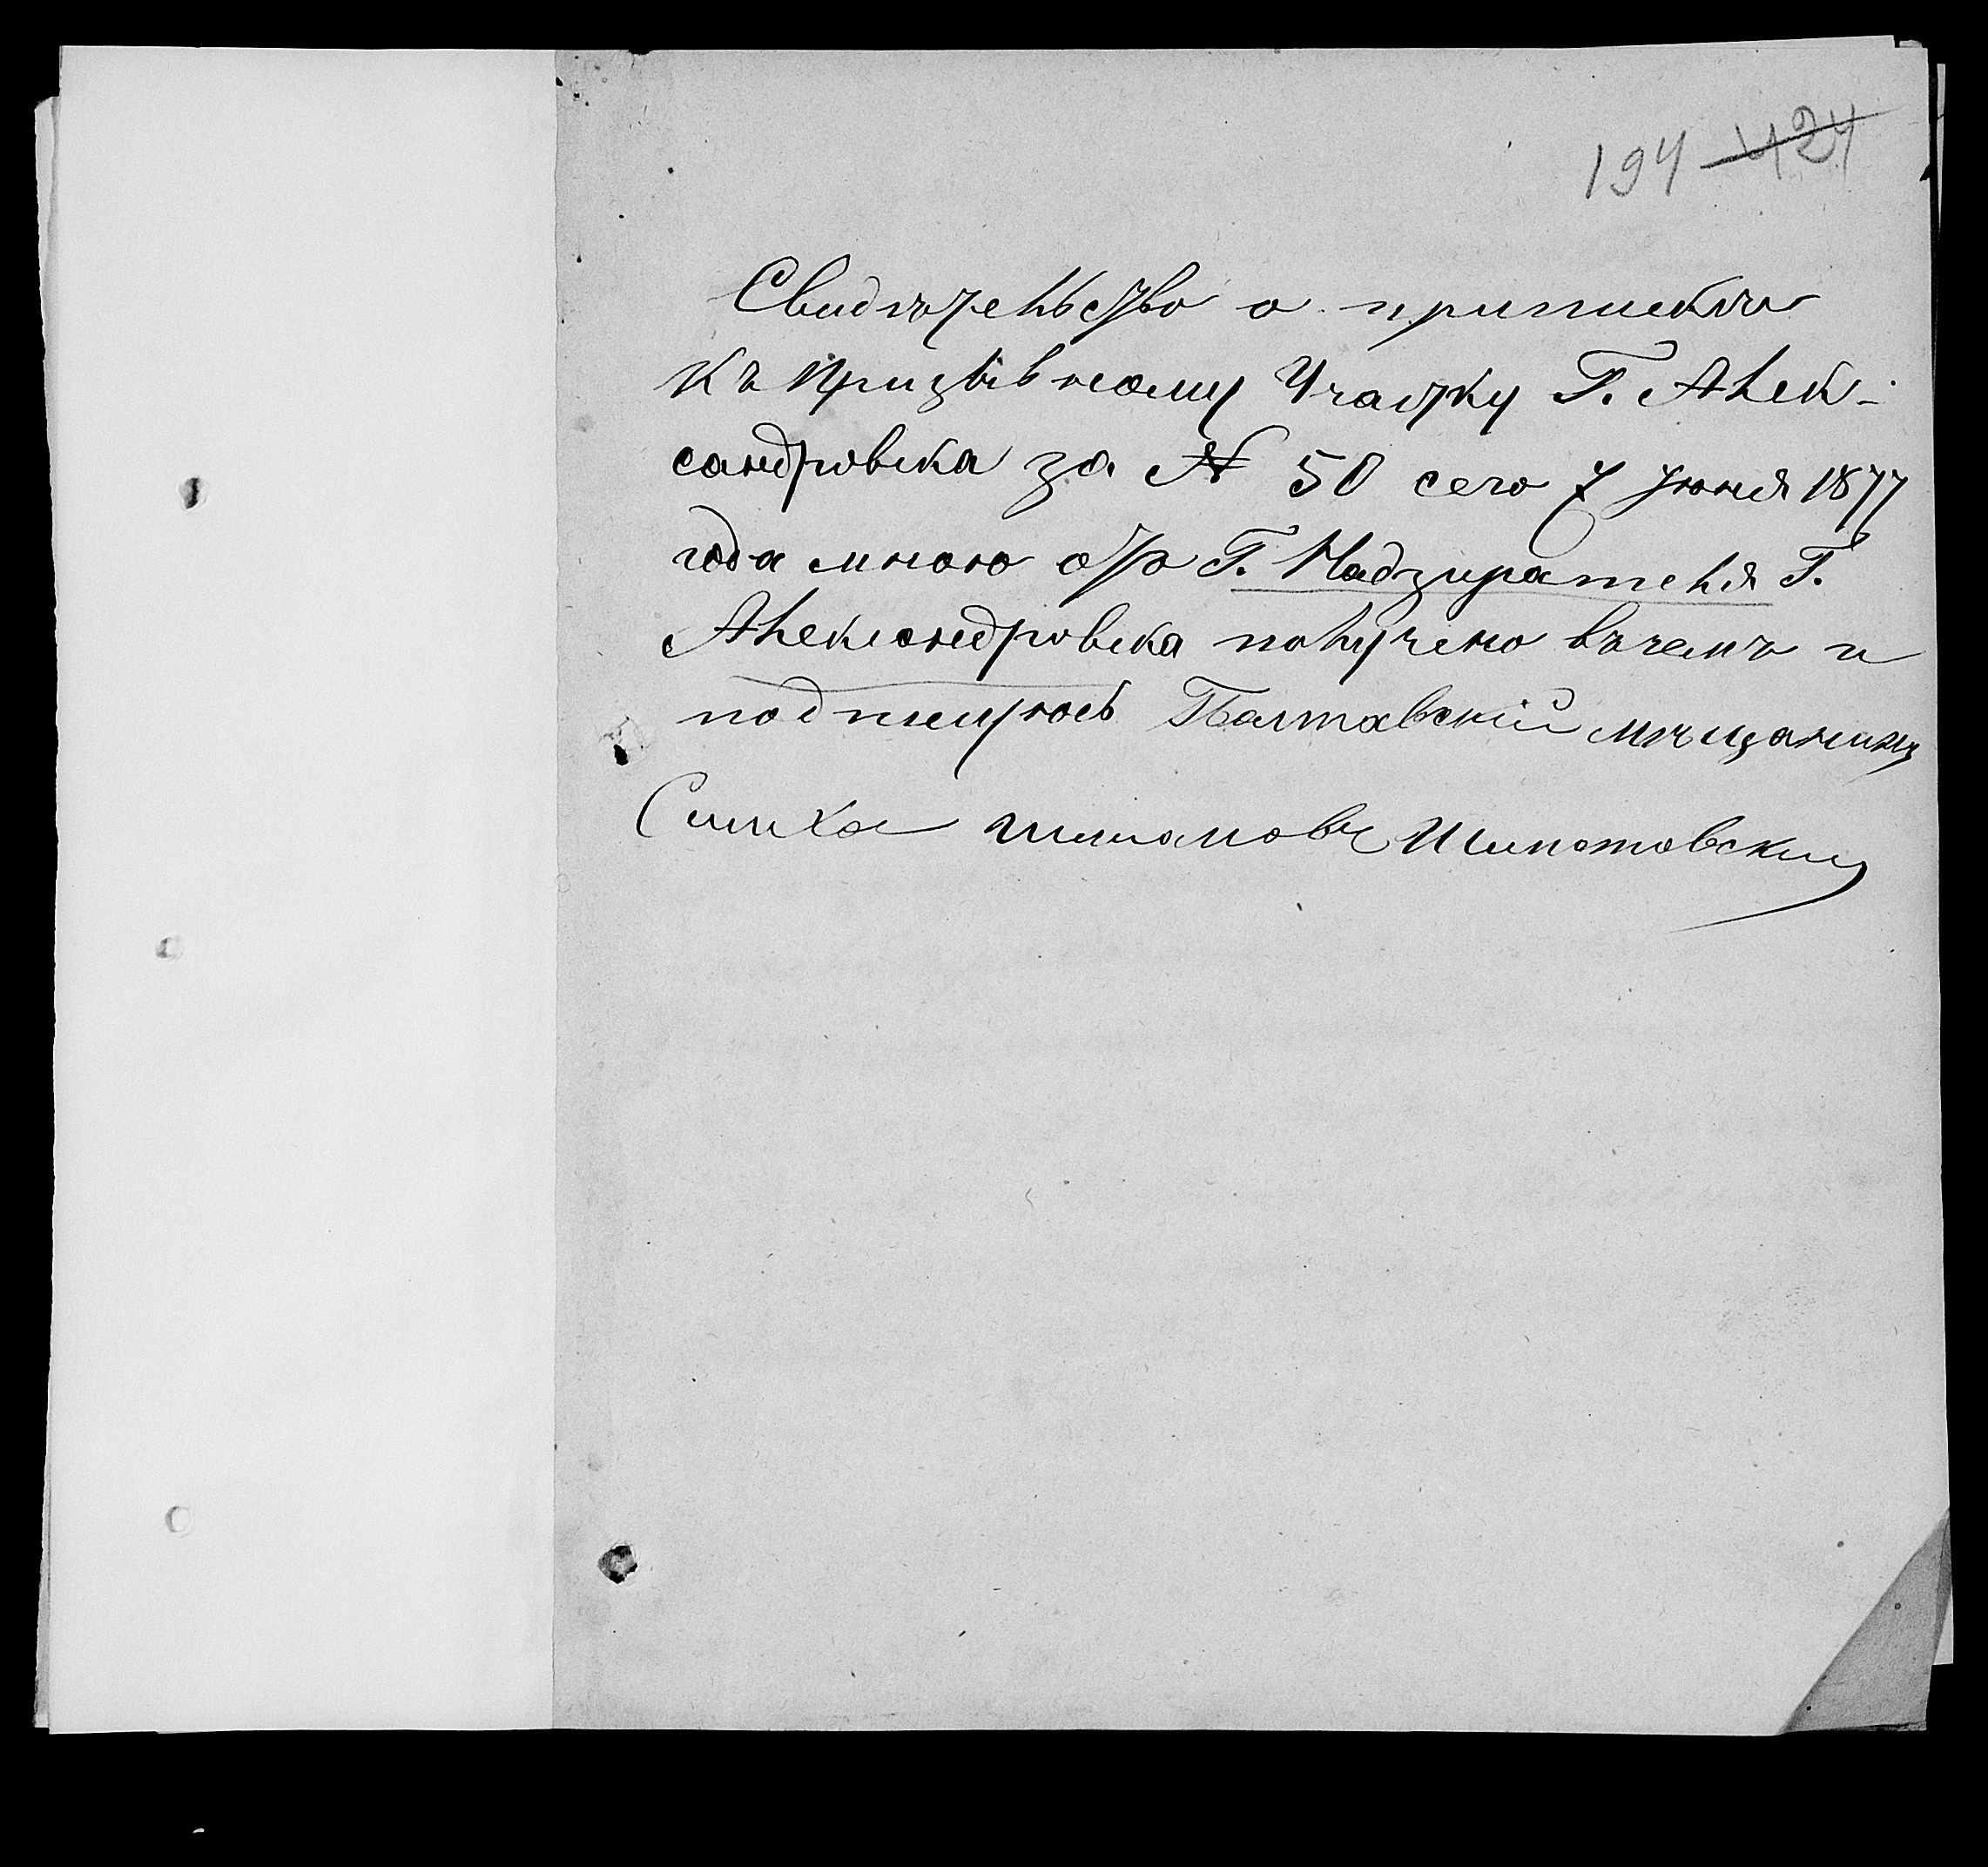 194 424
Свидѣтельство о припискѣ
къ призывному Участку Г. Алек-
сандровска за № 50 сего 7 Июня 1877
года мною отъ Г. Надзирателя Г.
Александровска получено въ чемъ и
подпишуюсь Полтавскій мѣщанинъ
Симха Шимоновъ Шимотовский